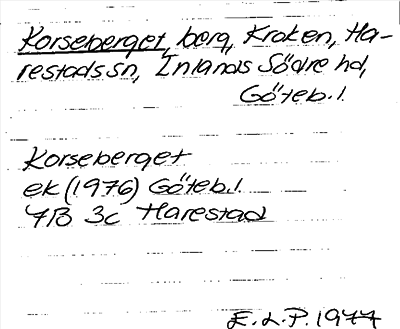 Korseberget, berg, Kroken, Ha-
restads sn, Inlands Södre hd,
Göteb. l.
Korseberget
ek (1976) Göteb. l.
7B 3c Harestad
E. L. P. 1977